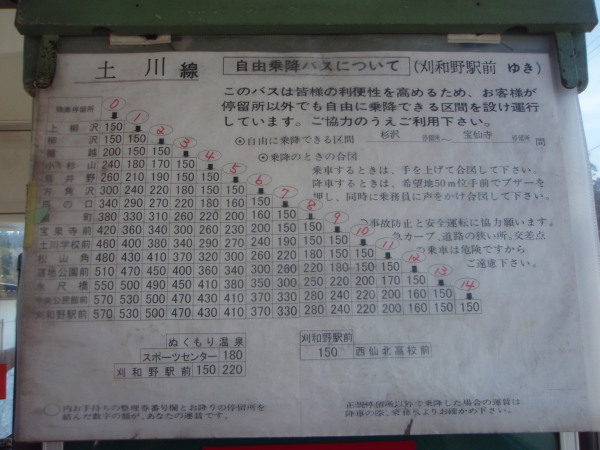 土川線
自由乗降バスについて (刈和野駅前 ゆき)
このバスは皆様の利便性を高めるため、お客様が
停留所以外でも自由に乗降できる区間を設け運行
しています。ご協力のうえご利用下さい。
◎自由に乗降できる区間 杉沢 停留所~宝仙寺 停留所 間
◎乗降のときの合図
乗車するときは、手を上げて合図して下さい。
降車するときは、希望地50m位手前でブザーを
押し、同時に乗務員に声をかけ合図して下さい。
事故防止と安全運転に協力願います。
急カーブ、道路の狭い所、交差点
の乗車は危険ですから
ご遠慮下さい。
0
上柳沢 150 1
柳沢 150 150 2
樋越 200 150 150 3
小杉山 240 180 170 150 4
260 210 190 150 150 5
300 240 220 180 150 150 6
の口 340 290 270 220 180 160 150 7
町 380 330 310 260 220 200 160 150 8
宝泉寺前 420 360 340 300 260 230 190 150 150 9
土川学校前 460 400 380 340 290 270 240 190 150 150 10
松山角 480 430 410 370 320 300 260 220 180 150 150 11
蓮池公園前 510 470 450 400 360 340 300 260 220 180 150 150 12
550 500 490 450 400 380 340 300 260 220 200 170 150 13
中央公民館前 570 530 500 470 430 410 370 330 280 240 220 200 150 150 14
刈和野駅前 570 530 500 470 430 410 370 330 280 240 220 200 160 150 150
ぬくもり温泉
スポーツセンター 180
刈和野駅前 150 220
刈和野駅前
150 西仙北高校前
内お手持ちの整理券番号欄とお降りの停留所を
結んだ数字の額が、あなたの運賃です。
正規停留所以外で乗降した場合の運賃は
降車の際、乗務員よりお確かめ下さい。